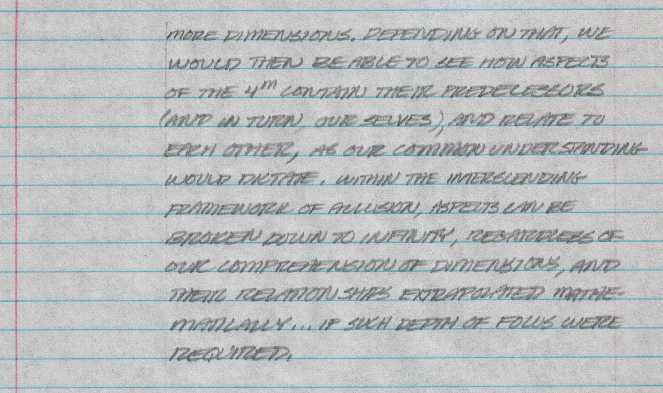 MORE DIMENSIONS. DEPENDING ON THAT, WE
WOULD THEN BE ABLE TO SEE HOW ASPECTS
OF THE 4TH CONTAIN THEIR PREDECESSORS
(AND IN TURN, OUR SELVES), AND RELATE TO
EACH OTHER, AS OUR COMMON UNDERSTANDING
WOULD DICTATE. WITHIN THE INTERBLENDING
FRAMEWORK OF ALLUSION, ASPECTS CAN BE
BROKEN DOWN TO INFINITY, REGARDLESS OF
OUR COMPREHENSION OF DIMENSIONS, AND
THEIR RELATIONSHIPS EXTRAPOLATED MATHE-
MATICALLY... IF SUCH DEPTH OF FOCUS WERE
REQUIRED.